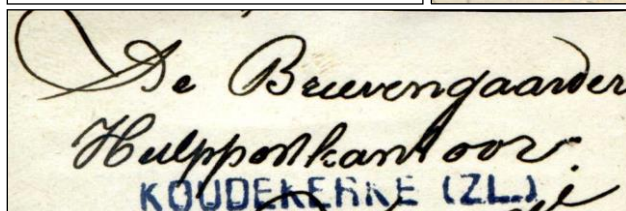 De Brievengaarder
Hulppostkantoor
KOUDEKERKE (ZL.)